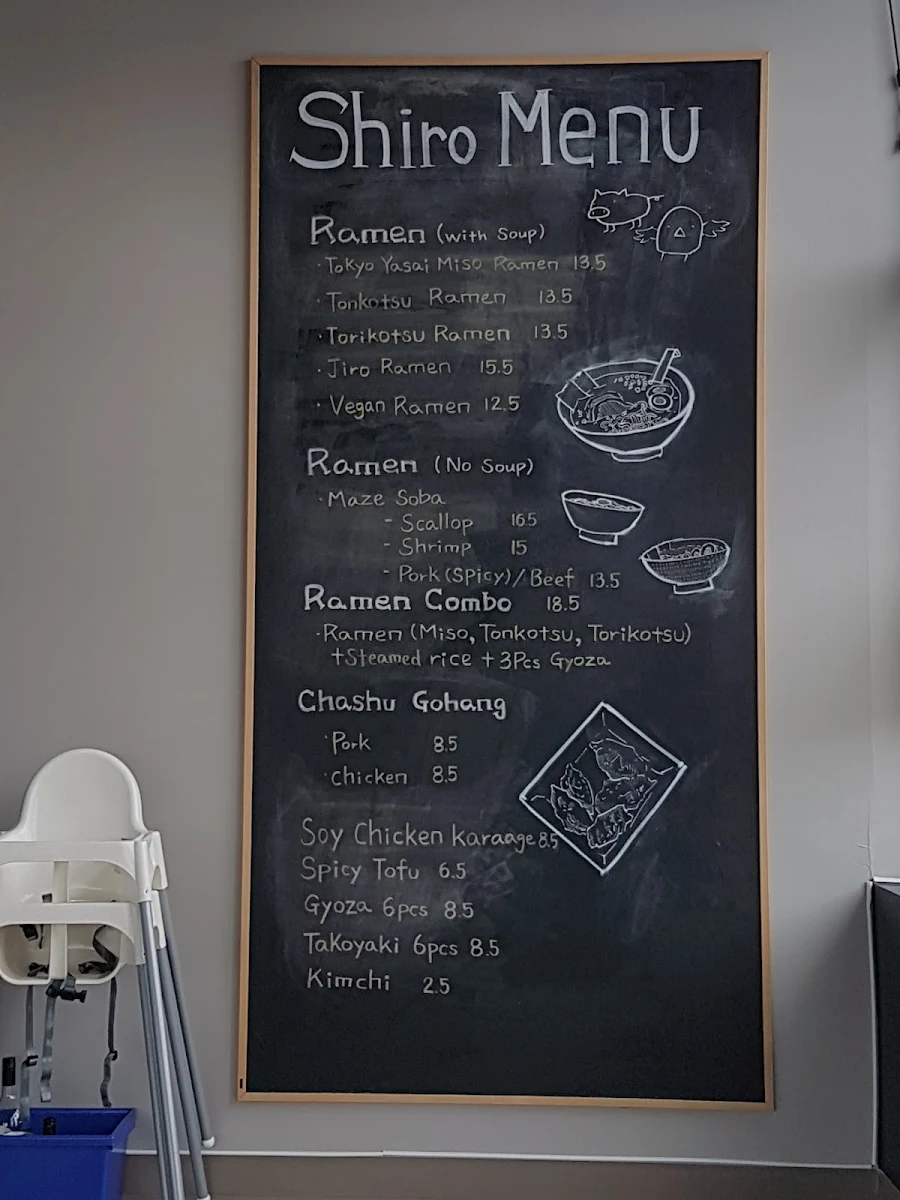 Shiro Menu
Ramen (with Soup)
· Tokyo Yasai Miso Ramen 13.5
· Tonkotsu Ramen 13.5
· Torikotsu Ramen 13.5
· Jiro Ramen 15.5
· Vegan Ramen 12.5
Ramen (No Soup)
· Maze Soba
- Scallop 16.5
- Shrimp 15
- Pork (Spicy) / Beef 13.5
Ramen Combo 18.5
· Ramen (Miso, Tonkotsu, Torikotsu)
+ Steamed rice + 3Pcs Gyoza
Chashu Gohang
· Pork 8.5
· Chicken 8.5
Soy Chicken Karaage 8.5
Spicy Tofu 6.5
Gyoza 6pcs 8.5
Takoyaki 6pcs 8.5
Kimchi 2.5